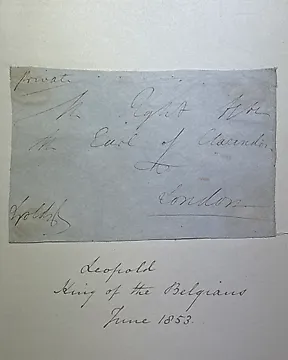 Private
The Right Hble
the Earl of Clarendon
London
Leopold
King of the Belgians
June 1853.